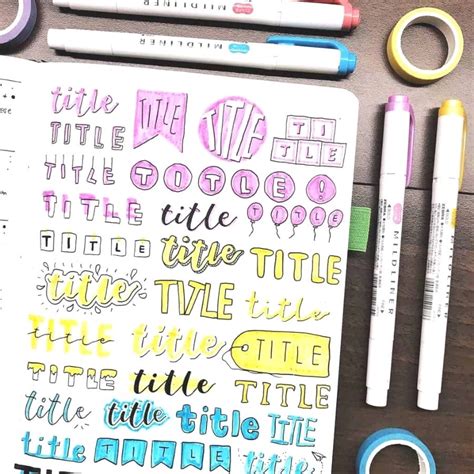 MILDLINER
MILDLINER
title TITLE TITLE
TITLE TI
TLE
TITLE TITLE!
TITLE title TITLE
TITLE title TITLE
title TITLE title
TITLE title TITLE
TITLE title TITLE
title title title TITLE
title TITLE title
MILDLINER
MILDLINER